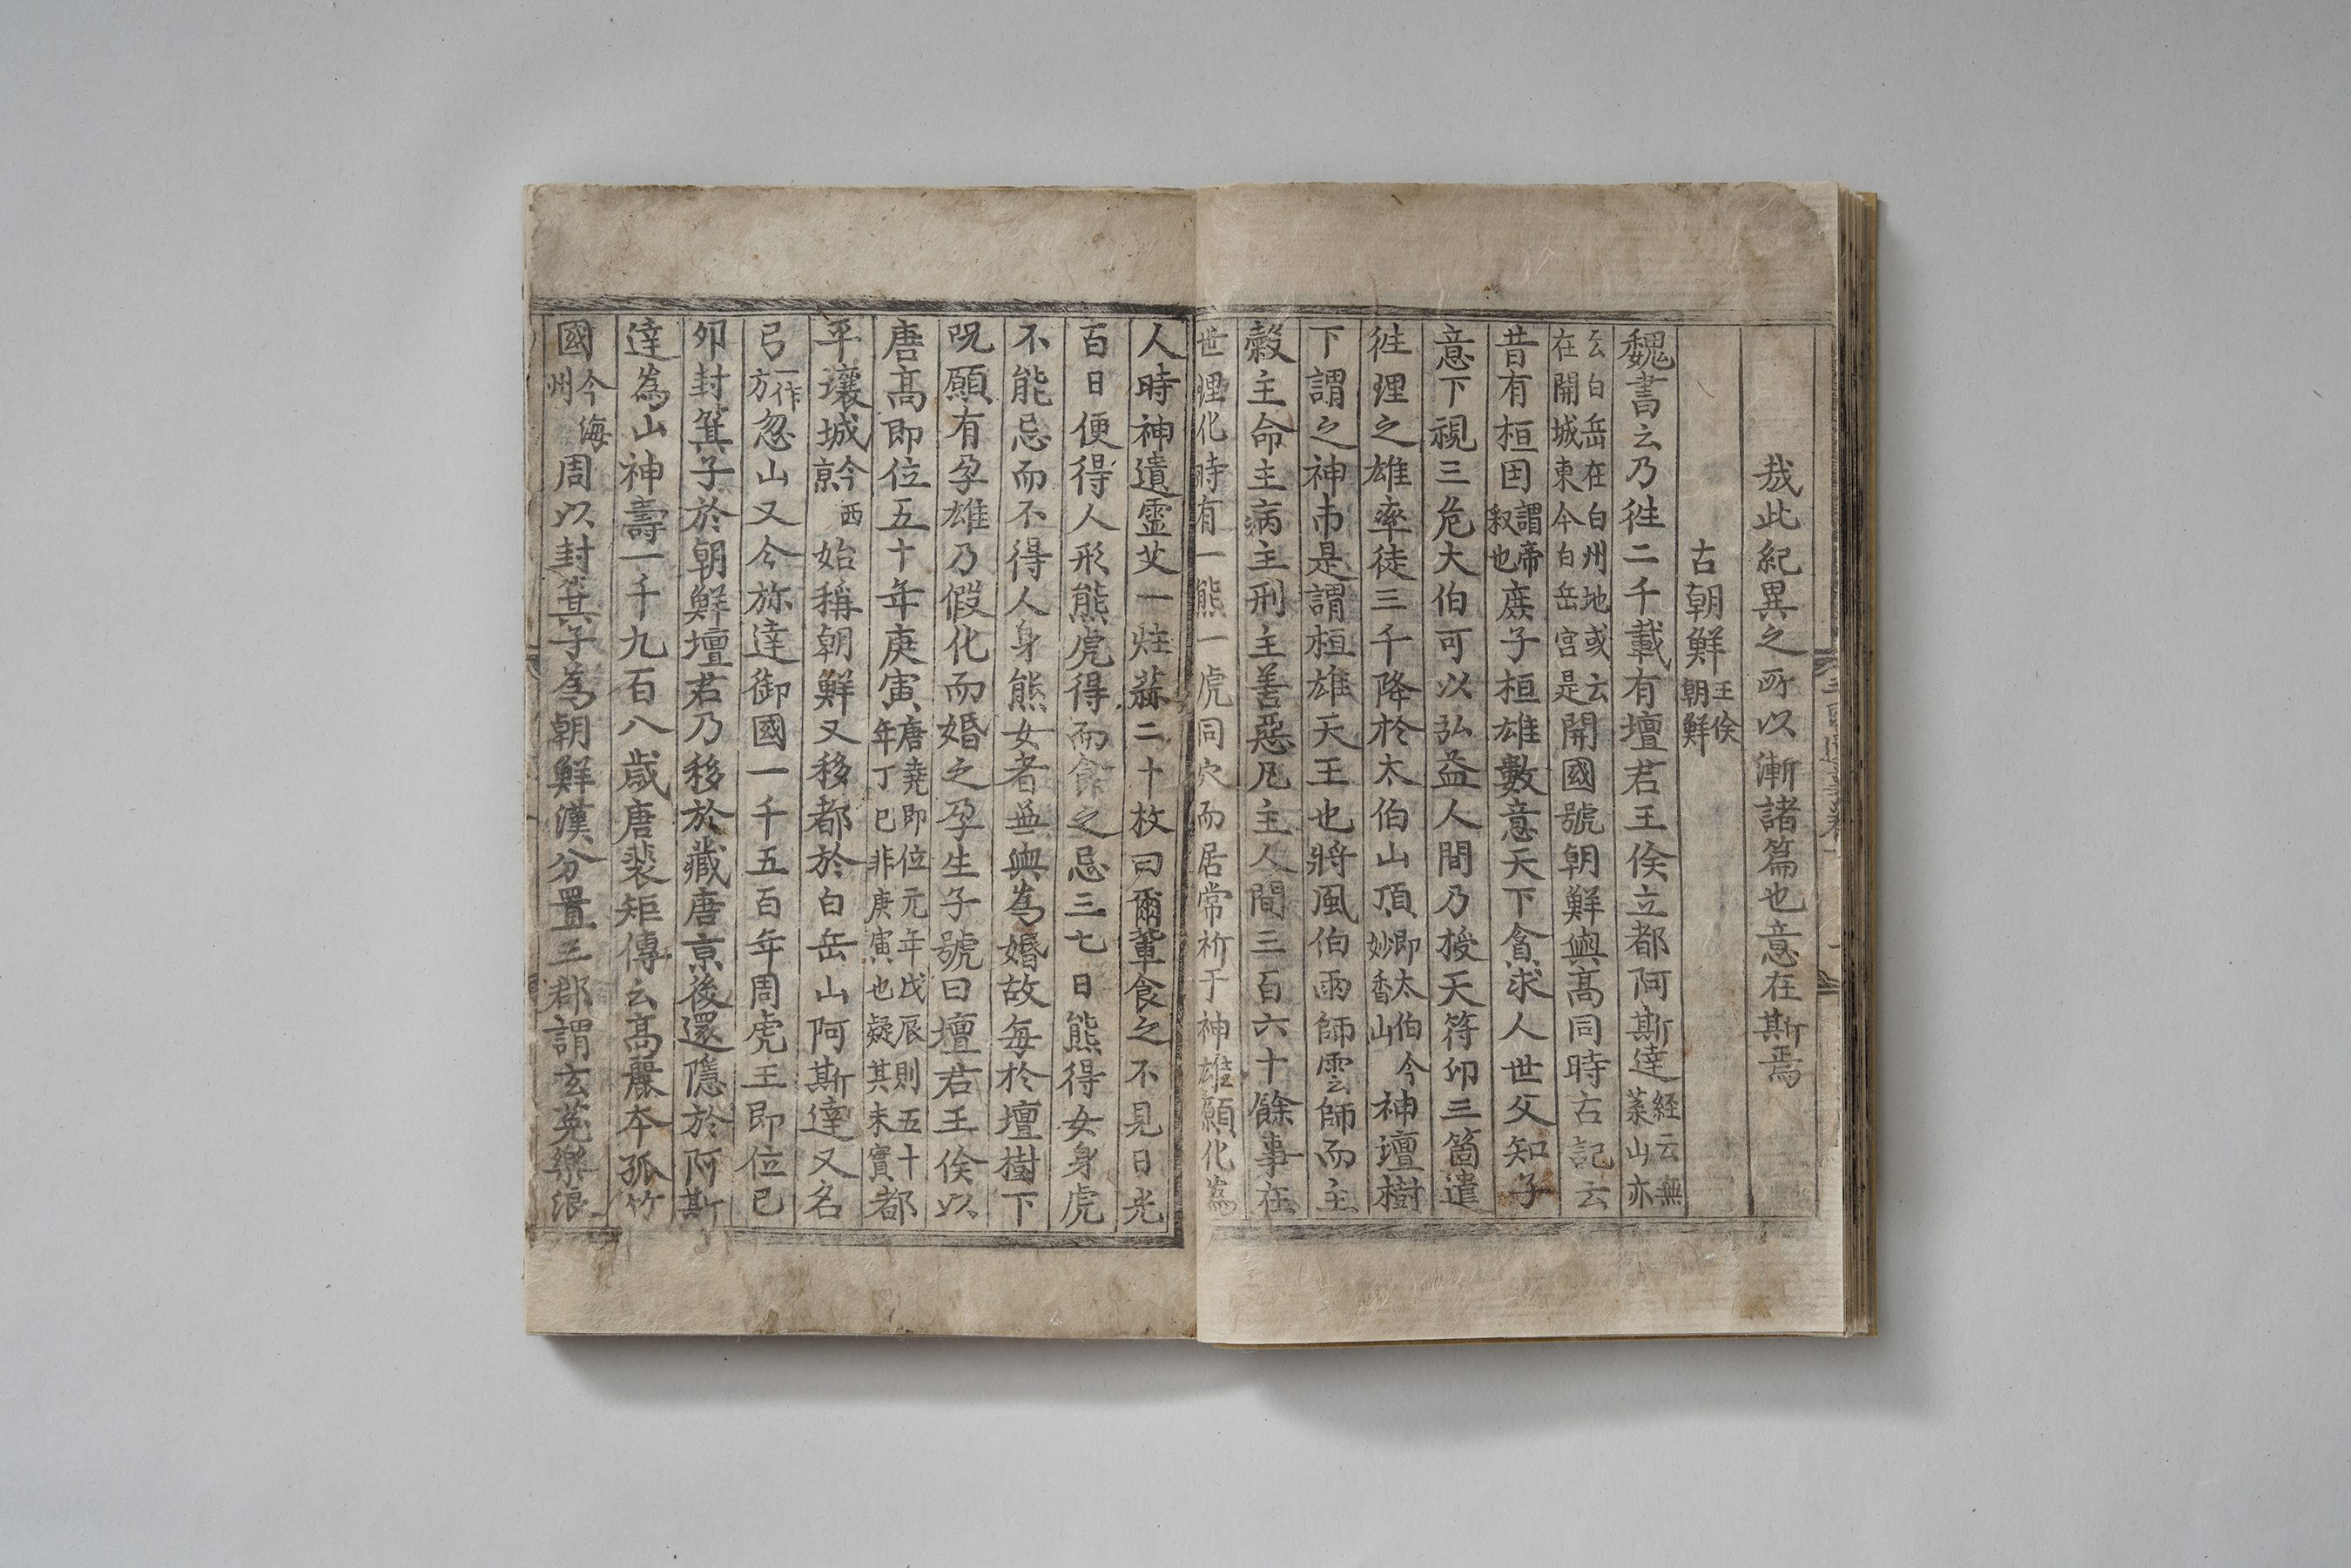 哉此紀異之所以漸諸篇也意在斯焉
古朝鮮王倹朝鮮
魏書云乃徃二千載有壇君王倹立都阿斯達経云無葉山亦
云白岳在白州地或云在開城東今白岳宮是開國號朝鮮與髙同時古記云
昔有桓囯謂帝釈也庻子桓雄數意天下貪求人世父知子
意下視三危大伯可以弘益人間乃授天符印三箇遣
徃理之雄率徒三千降於太伯山頂即太伯今妙香山神壇樹
下謂之神市是謂桓雄天王也將風伯雨師雲師而主
糓主命主病主刑主善惡凡主人間三百六十餘事在
世理化時有一熊一虎同穴而居常祈于神雄願化為
人時神遺霊艾一炷蒜二十枚曰爾軰食之不見日光
百日便得人形熊虎得而食之忌三七日熊得女身虎
不能忌而不得人身熊女者無與為婚故每於壇樹下
呪願有孕雄乃假化而婚之孕生子號曰壇君王倹以
唐髙即位五十年庚寅唐堯即位元年戊辰則五十年丁巳非庚寅也疑其未實都
平壤城今西亰始稱朝鮮又移都於白岳山阿斯達又名
弓一作方忽山又今旀達御國一千五百年周虎王即位己
卯封箕子於朝鮮壇君乃移於藏唐亰後還隱於阿斯
達為山神壽一千九百八歳唐裴矩傳云髙麗本孤竹
國今海州周以封箕子為朝鮮漢分置三郡謂玄莵樂浪